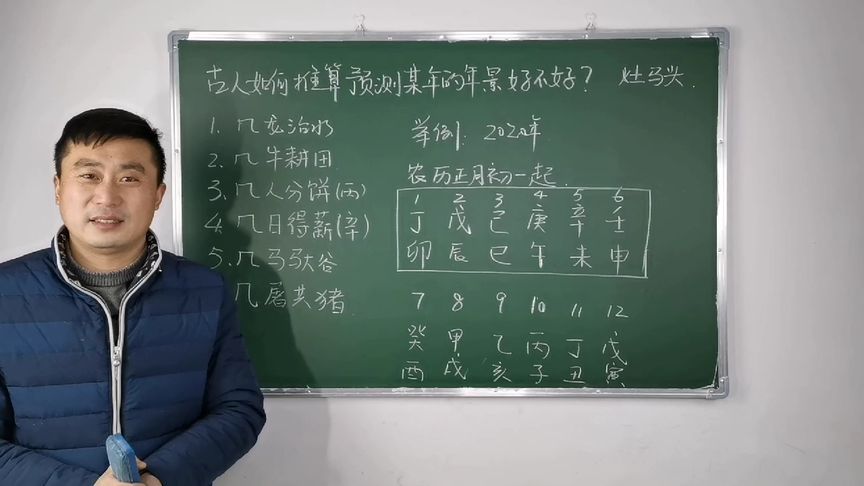 古人如何推算预测某年的年景好不好？ 灶马头.
1. 几龙治水
2. 几牛耕田
3. 几人分饼(丙)
4. 几日得薪(辛)
5. 几马驮谷
几屠共猪
举例: 2020年
农历正月初一起.
1 2 3 4 5 6
丁 戊 己 庚 辛 壬
卯 辰 巳 午 未 申
7 8 9 10 11 12
癸 甲 乙 丙 丁 戊
酉 戌 亥 子 丑 寅